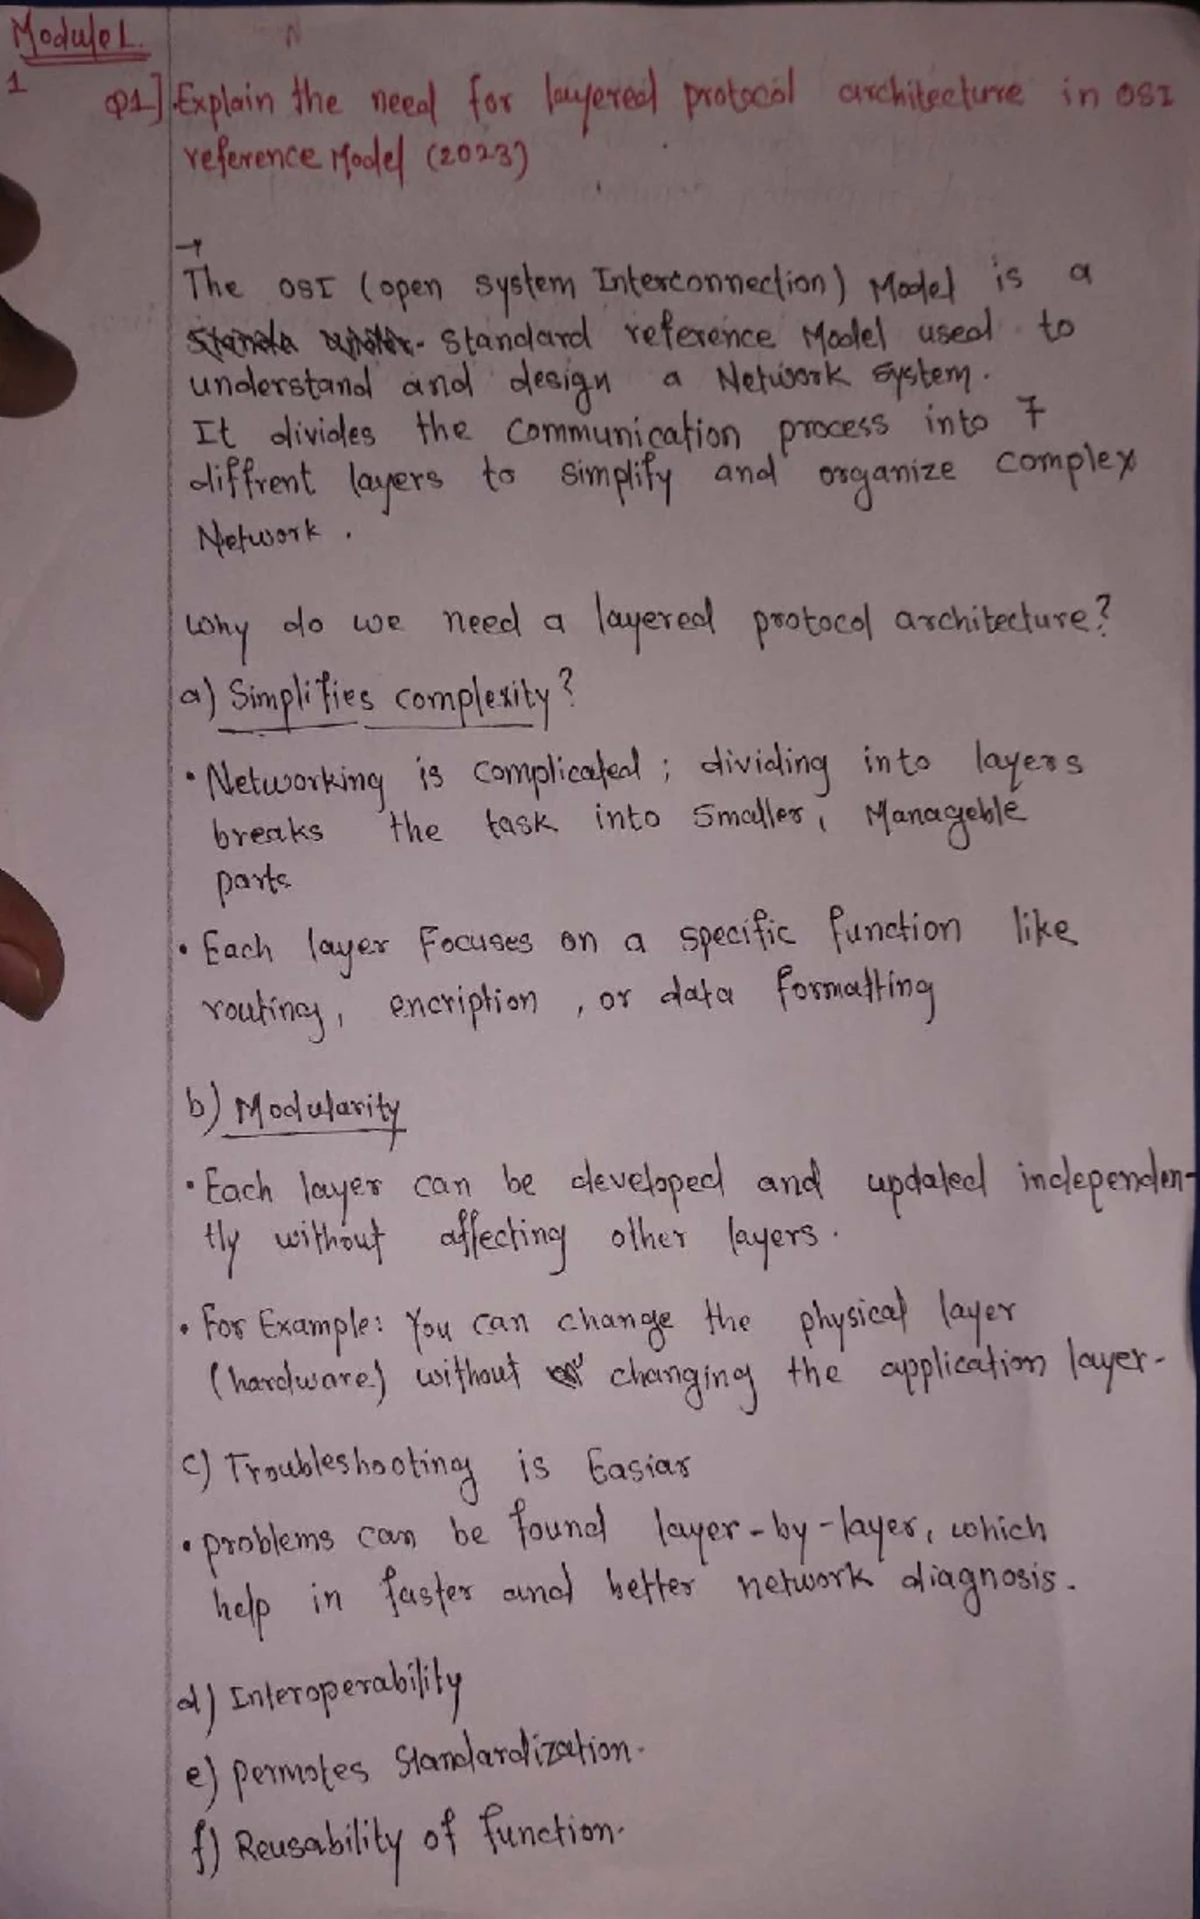 Module 1.
1
Q1] Explain the need for layered protocol architecture in OSI
reference Model (2023)
→
The OSI (open system Interconnection) Model is a
standard reference Model used to
understand and design a Network system.
It divides the communication process into 7
diffrent layers to simplify and organize complex
Network.
Why do we need a layered protocol architecture?
a) Simplifies complexity?
• Networking is complicated; dividing into layers
breaks the task into smaller, Manageble
parts
• Each layer Focuses on a specific function like
routing, encription, or data formatting
b) Modularity
• Each layer can be developed and updated independen-
tly without affecting other layers.
• For Example: You can change the physical layer
(hardware) without changing the application layer-
c) Troubleshooting is Easiar
• problems can be found layer-by-layer, which
help in faster and better network diagnosis.
d) Interoperability
e) permotes Standardization.
f) Reusability of function.